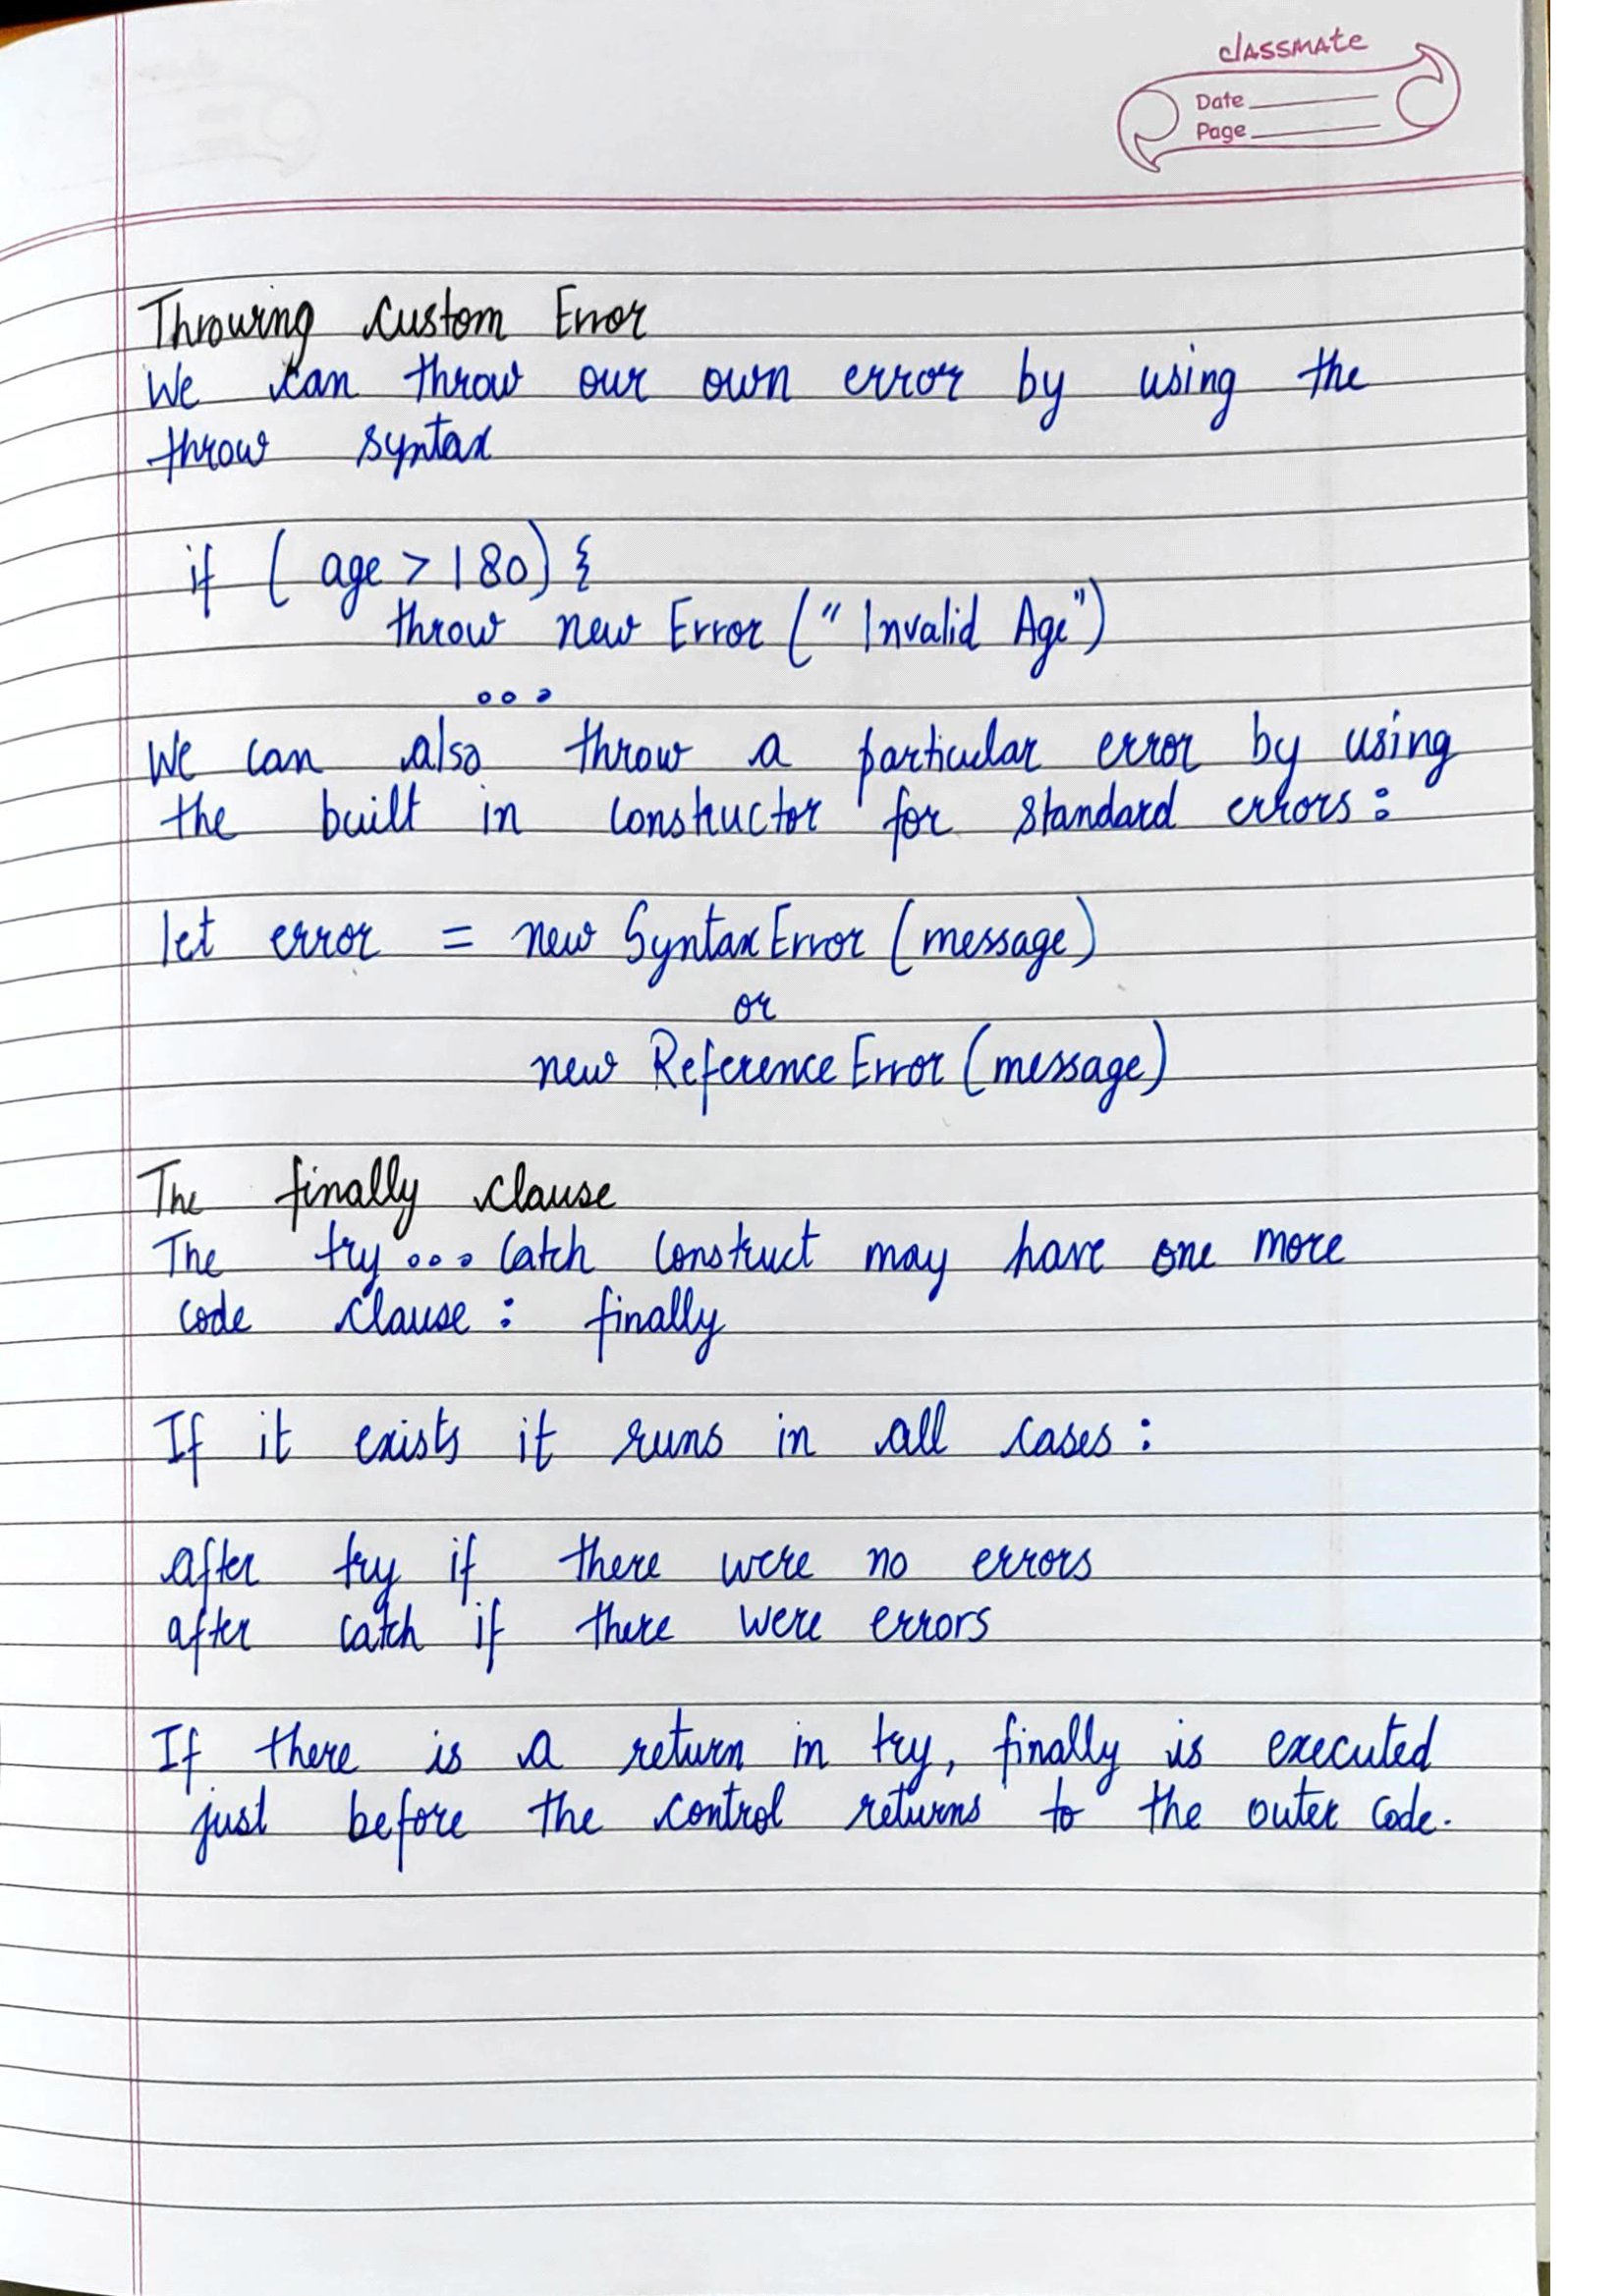 classmate
Date
Page
Throwing custom Error
We can throw our own error by using the
throw syntax
if ( age > 180) {
throw new Error (" Invalid Age")
...
We can also throw a particular error by using
the built in constructor for standard errors:
let error = new SyntaxError (message)
or
new ReferenceError (message)
The finally clause
The try...catch construct may have one more
code clause: finally
If it exists it runs in all cases:
after try if there were no errors
after catch if there were errors
If there is a return in try, finally is executed
just before the control returns to the outer code.